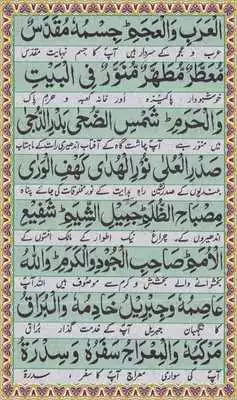 الْعَرَبِ وَالْعَجَمِ جِسْمُهٗ مُقَدَّسٌ
عرب و عجم کے سردار ہیں آپ کا جسم نہایت مقدس
مُعَطَّرٌ مُطَهَّرٌ مُنَوَّرٌ فِي الْبَيْتِ
خوشبودار پاکیزہ اور خانہ کعبہ و حرم پاک
وَالْحَرَمِ شَمْسِ الضُّحٰى بَدْرِ الدُّجٰى
میں منور ہے آپ چاشت گاہ کے آفتاب اندھیری رات کے ماہتاب
صَدْرِ الْعُلٰى نُوْرِ الْهُدٰى كَهْفِ الْوَرٰى
بلندیوں کے صدر نشین راہ ہدایت کے نور مخلوقات کی جائے پناہ
مِصْبَاحِ الظُّلَمِ جَمِيْلِ الشِّيَمِ شَفِيْعِ
اندھیروں کے چراغ نیک اطوار کے مالک امتوں کے
الْاُمَمِ صَاحِبِ الْجُوْدِ وَالْكَرَمِ وَاللّٰهُ
بخشوانے والے بخشش و کرم سے موصوف ہیں اللہ آپ
عَاصِمُهٗ وَجِبْرِيْلُ خَادِمُهٗ وَالْبُرَاقُ
کا نگہبان جبریل آپ کے خدمت گذار براق
مَرْكَبُهٗ وَالْمِعْرَاجُ سَفَرُهٗ وَسِدْرَةُ
آپ کی سواری معراج آپ کا سفر سدرة